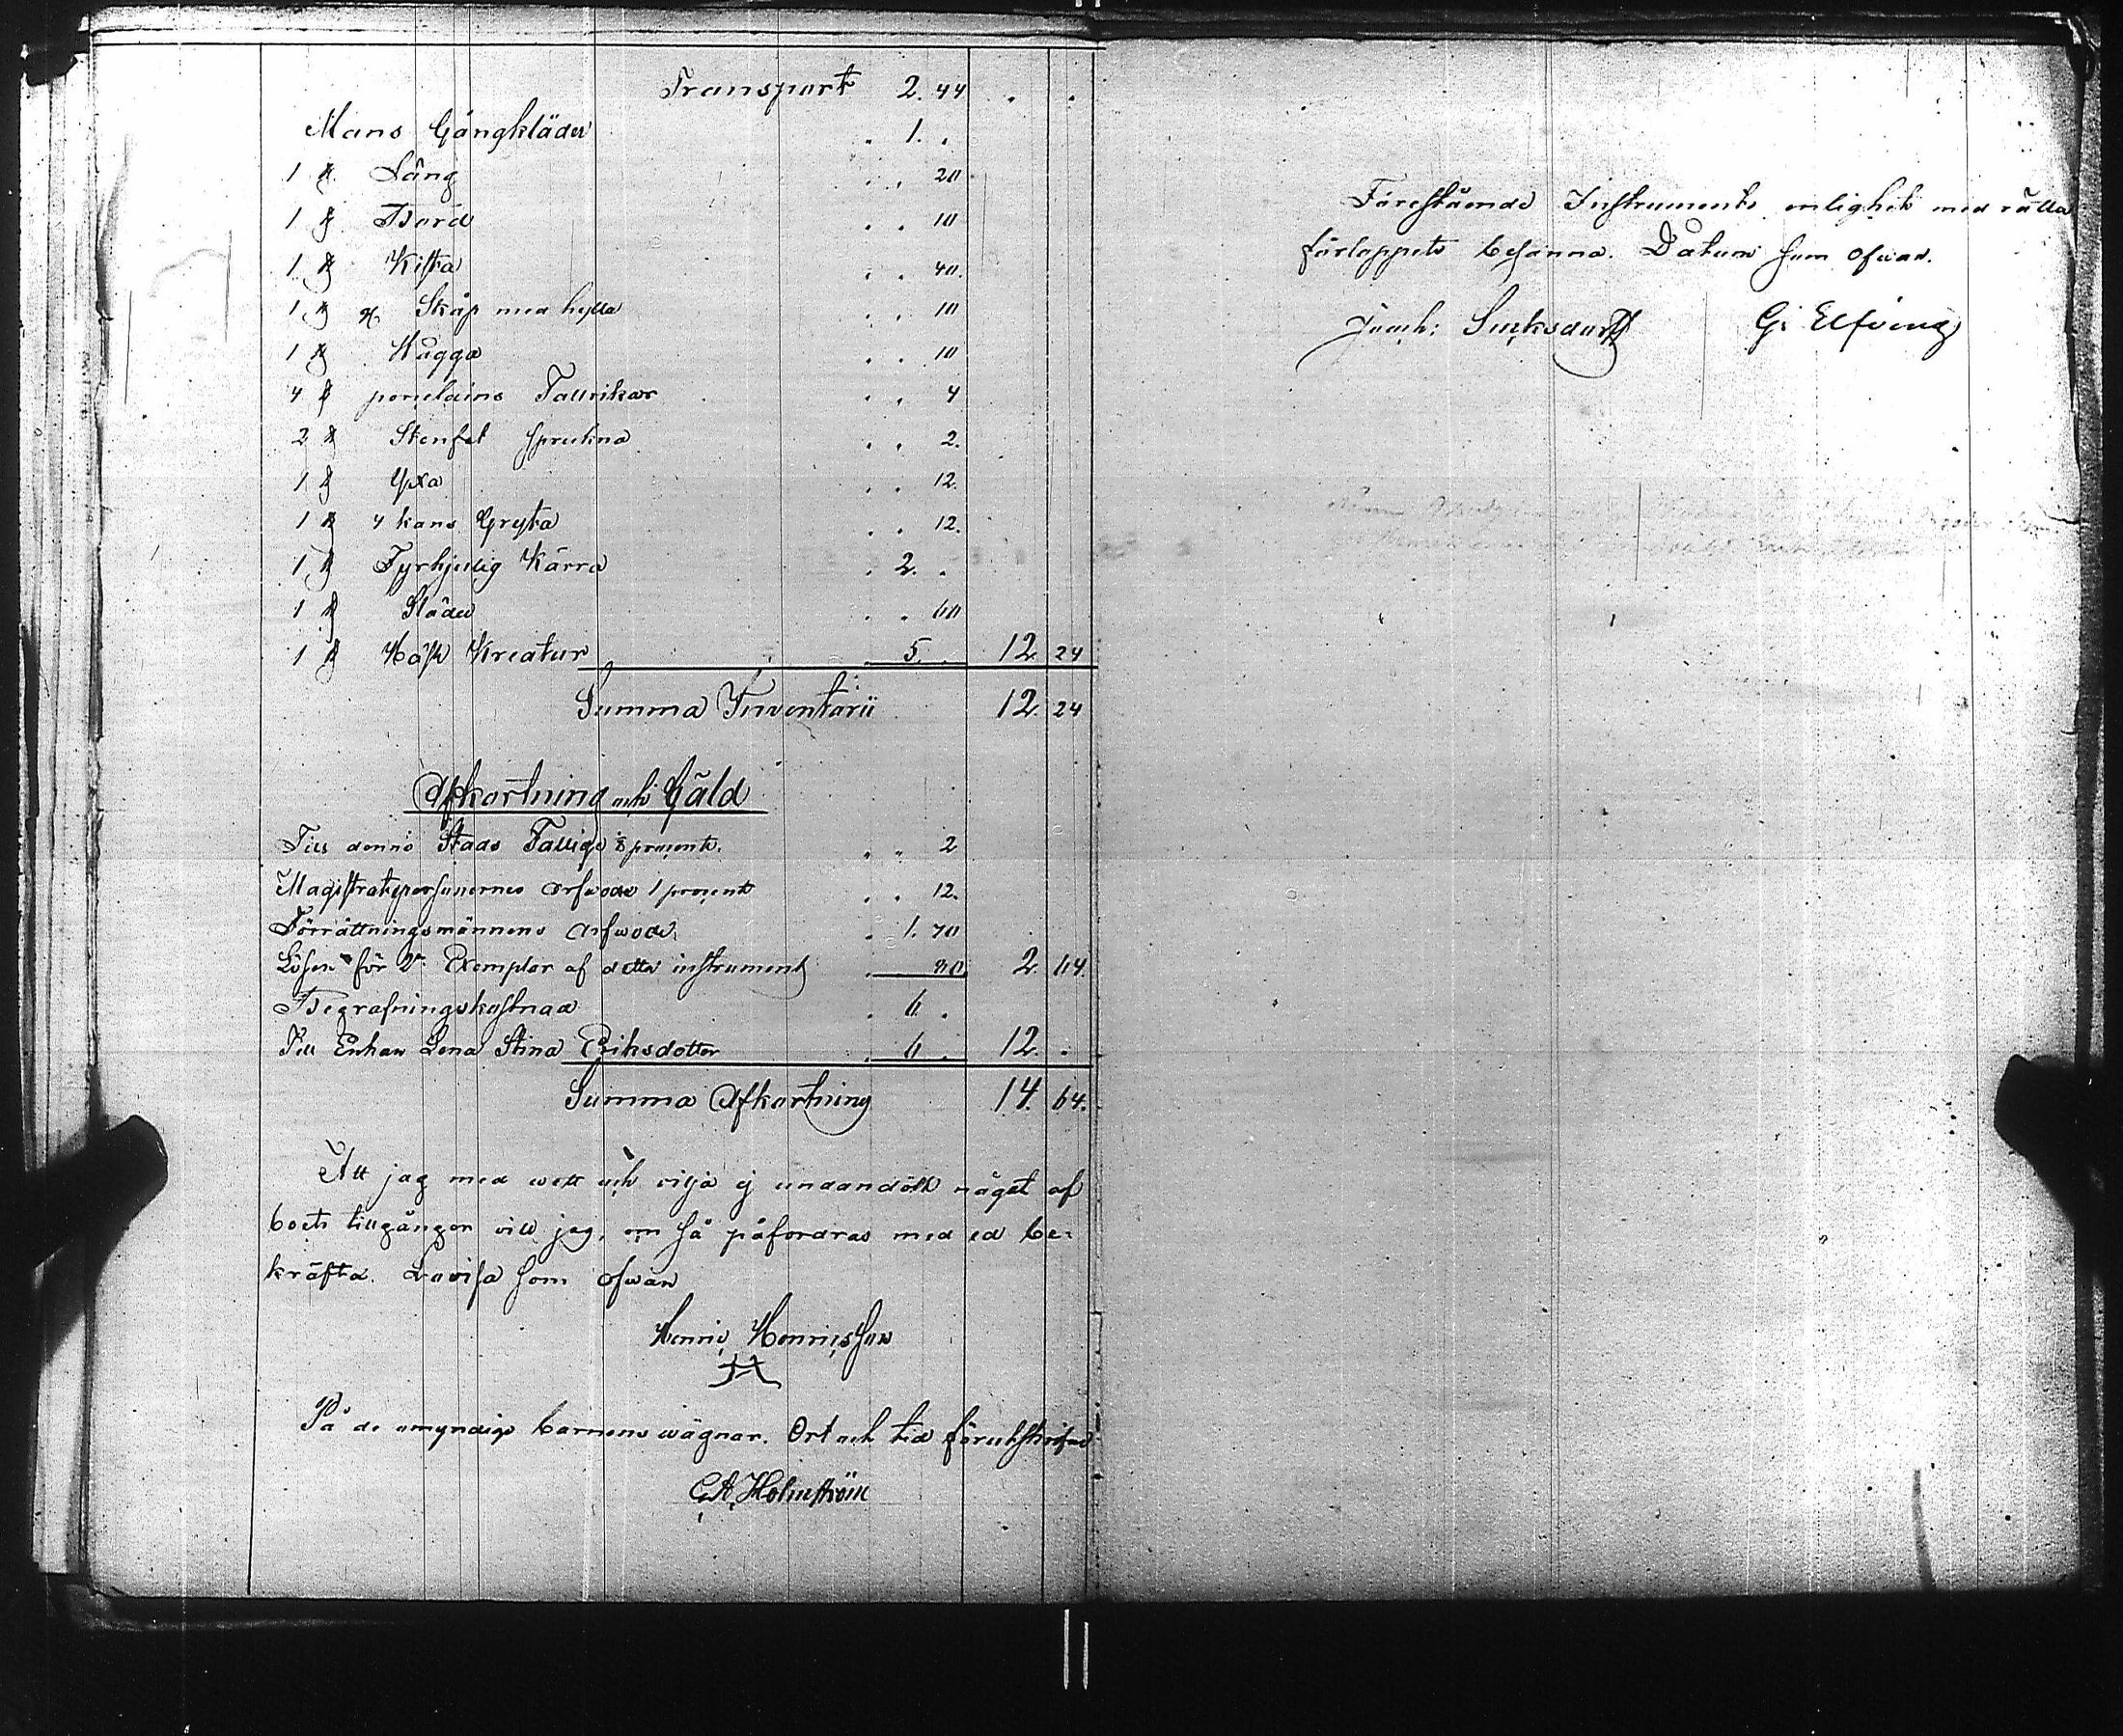 Transport 2. 44 . .
Mans Gångkläder . 1. .
1 st Säng . . 20
1 st Bord . . 10
1 st Kista . . 40.
1 st Skåp med hylla . . 10
1 st Wagga . . 10
4 st porslains Tallrikar . . 4
2 st Stenfat spruckna . . 2.
1 st Yxa . . 12.
1 st 4 kans Gryta . . 12.
1 st Fyrhjulig Kärra . 2. .
1 st Släde . . 60
1 st Häst Kreatur . 5. . 12. 24
Summa Inventarii 12. 24
Afkortning och Gäld
Till denne Stads Fattige ⅛ procent. . . 2
Magistratspersonernes arfwode 1 procent . . 12.
Förrättningsmännens arfwode . 1. 70
Lösen för 2ne Exemplar af detta instrument . 80 2. 64.
Begrafningskostnad . 6 .
Till Enkan Lena Stina Eriksdotter . 6 . 12. .
Summa Afkortning 14. 64.
Att jag med wett och vilja ej undandölt något af
boets tillgångar vill jag, om så påfordras med ed be-
kräfta. Lovisa som ofwan
Henric Henricsson
På de omyndige barnens wägnar. Ort och tid förutskrifne
G A Holmström
Förestående Instruments enlighet med rätta
förloppet besanna. Datum som ofwan.
G: Elfving